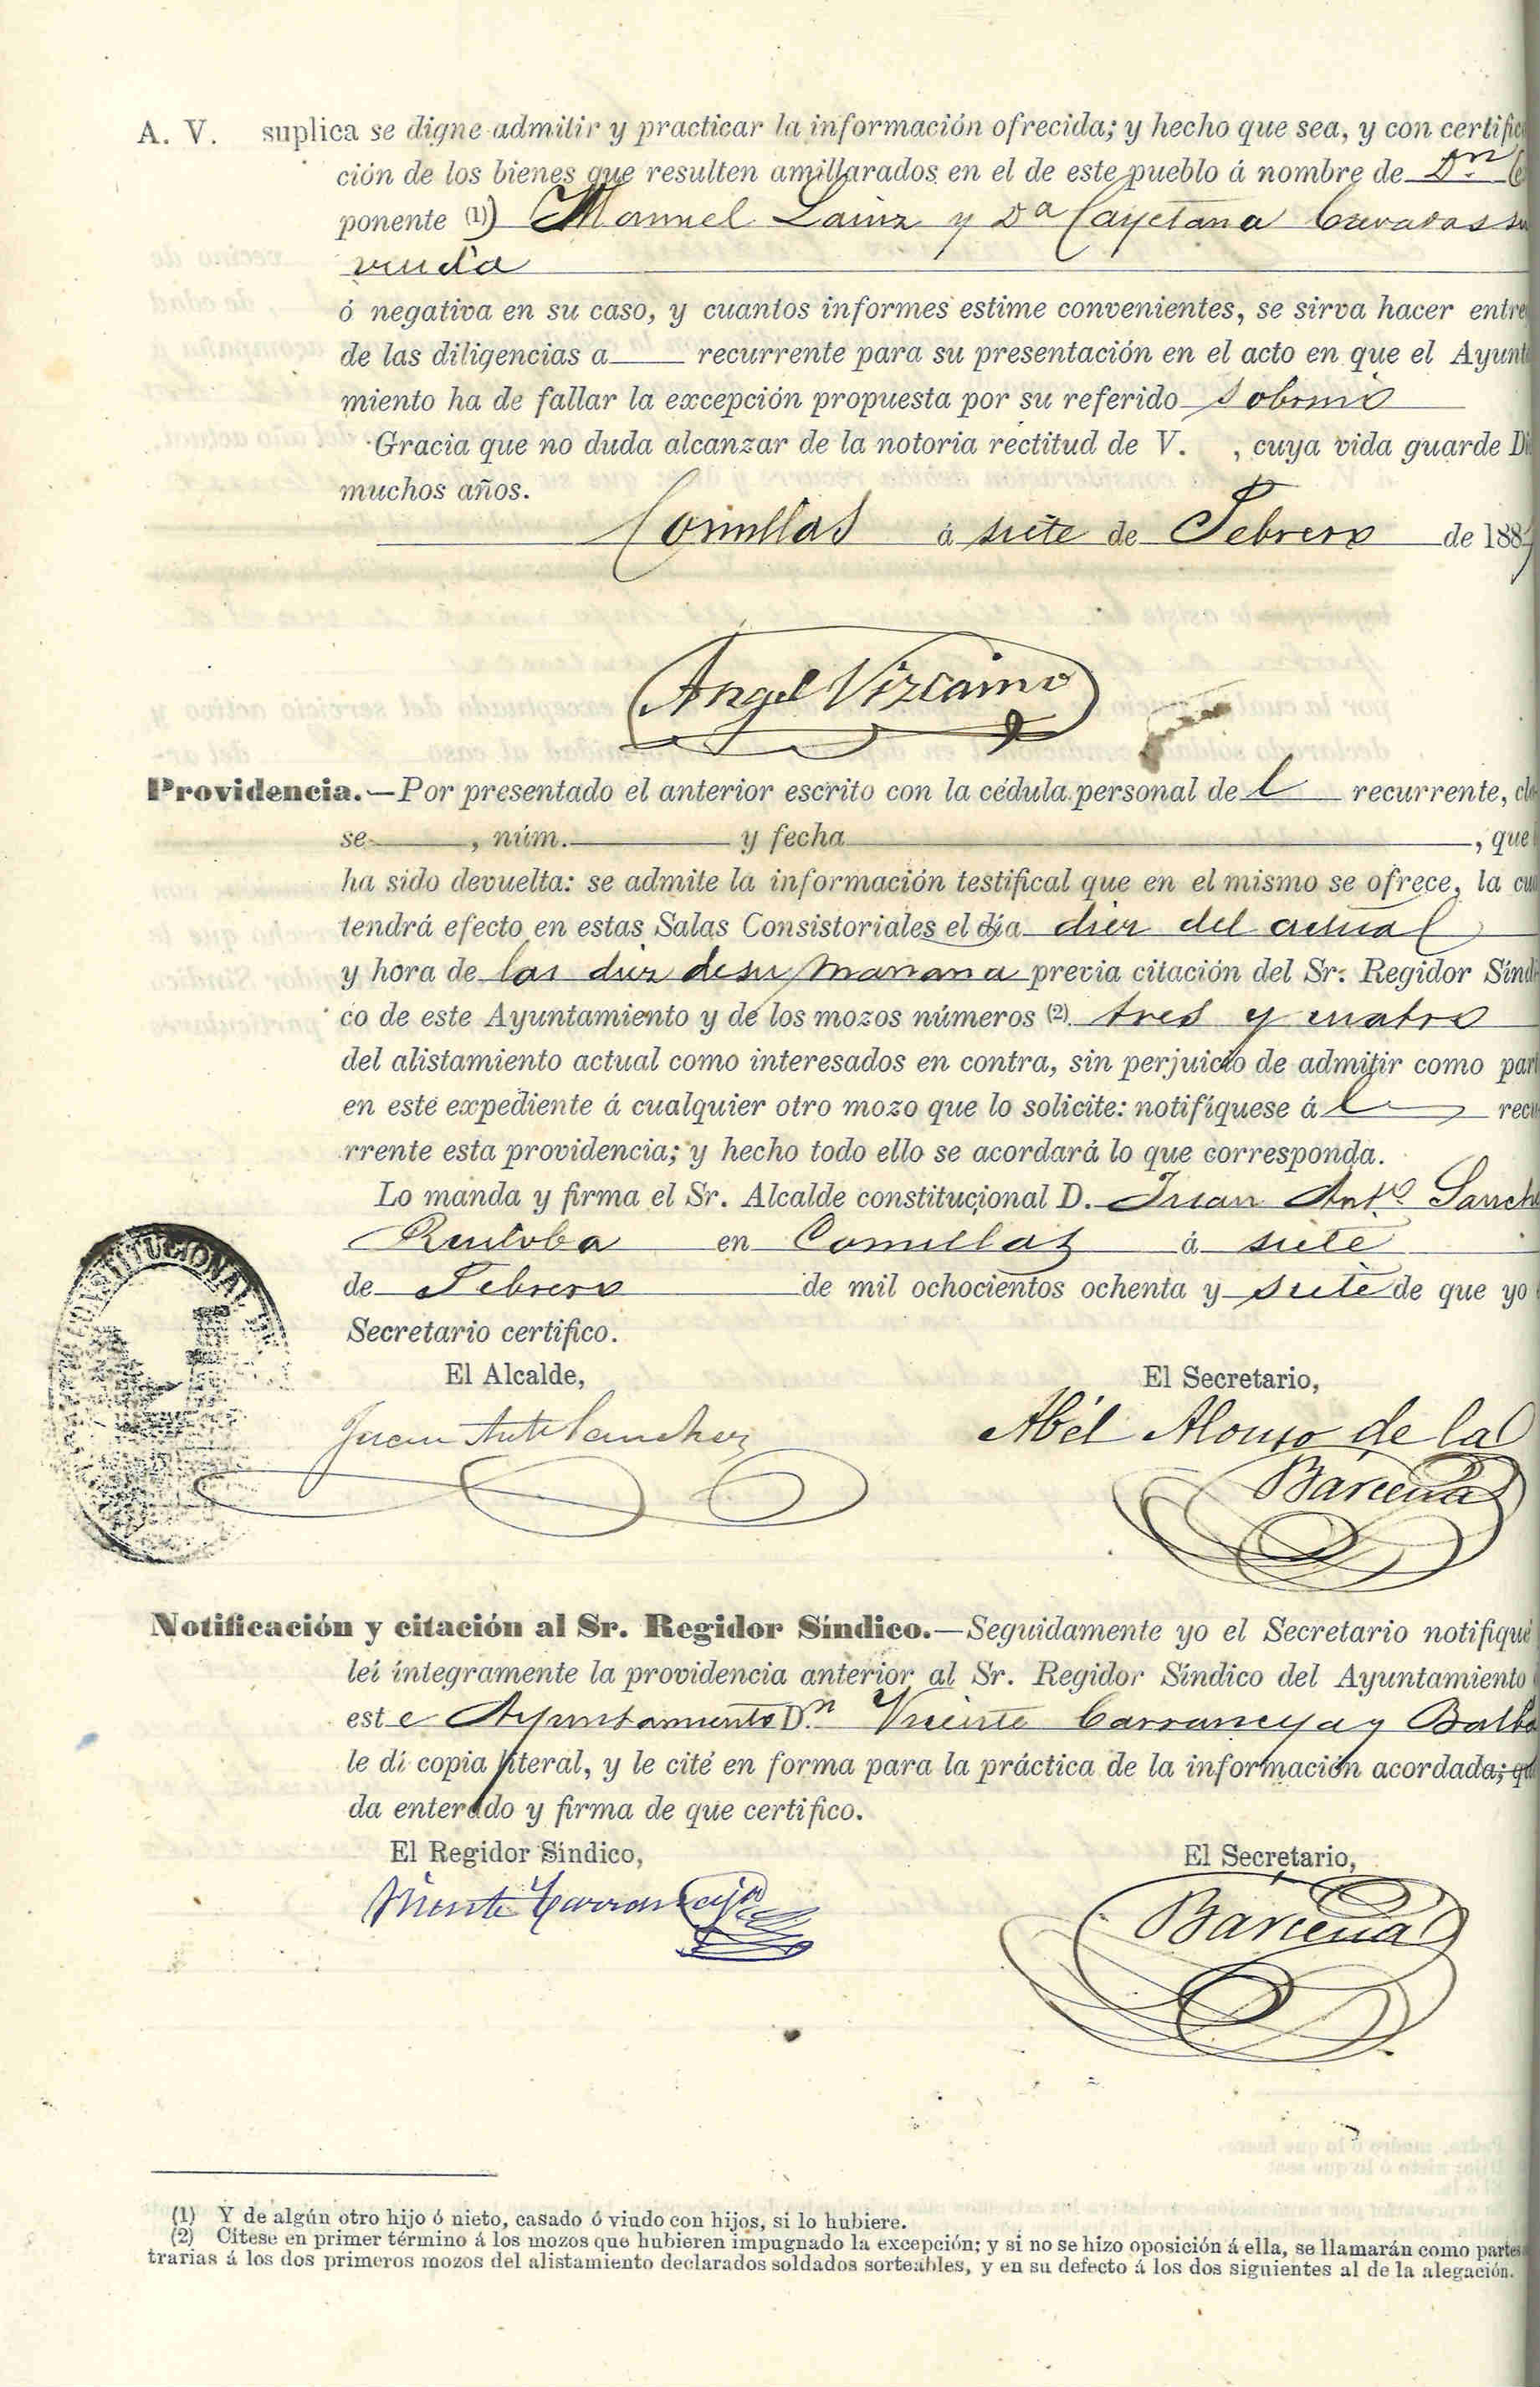 A. V. suplica se digne admitir y practicar la información ofrecida; y hecho que sea, y con certific
ción de los bienes que resulten amillarados en el de este pueblo á nombre de Dn
ponente (1) Manuel Lainz y Da Cayetana Cuvaras su
viuda
ó negativa en su caso, y cuantos informes estime convenientes, se sirva hacer entre
de las diligencias a recurrente para su presentación en el acto en que el Ayunt
miento ha de fallar la excepción propuesta por su referido sobrino
Gracia que no duda alcanzar de la notoria rectitud de V. , cuya vida guarde Di
muchos años.
Comillas á siete de Febrero de 1887
Angel Vizcaino
Providencia.—Por presentado el anterior escrito con la cédula personal de l recurrente, cla
se , núm. y fecha , que
ha sido devuelta: se admite la información testifical que en el mismo se ofrece, la cu
tendrá efecto en estas Salas Consistoriales el día diez del actual
y hora de las diez de su mañana previa citación del Sr. Regidor Síndi
co de este Ayuntamiento y de los mozos números (2) tres y cuatro
del alistamiento actual como interesados en contra, sin perjuicio de admitir como par
en este expediente á cualquier otro mozo que lo solicite: notifíquese á l recu
rrente esta providencia; y hecho todo ello se acordará lo que corresponda.
Lo manda y firma el Sr. Alcalde constitucional D. Juan Anto Sanche
Ruiloba en Comillas á siete
de Febrero de mil ochocientos ochenta y siete de que yo
Secretario certifico.
CONSTITUCIONAL
El Alcalde, El Secretario,
Juan Anto Sanchez Abél Alonso de la
Barcena
Notificación y citación al Sr. Regidor Síndico.—Seguidamente yo el Secretario notifiqué
leí íntegramente la providencia anterior al Sr. Regidor Síndico del Ayuntamiento
est e Ayuntamiento Dn Vicente Carranceja y Balba
le dí copia literal, y le cité en forma para la práctica de la información acordada; que
da enterado y firma de que certifico.
El Regidor Síndico, El Secretario,
Vicente Carranceja Barcena
(1) Y de algún otro hijo ó nieto, casado ó viudo con hijos, si lo hubiere.
(2) Cítese en primer término á los mozos que hubieren impugnado la excepción; y si no se hizo oposición á ella, se llamarán como partes
trarias á los dos primeros mozos del alistamiento declarados soldados sorteables, y en su defecto á los dos siguientes al de la alegación.